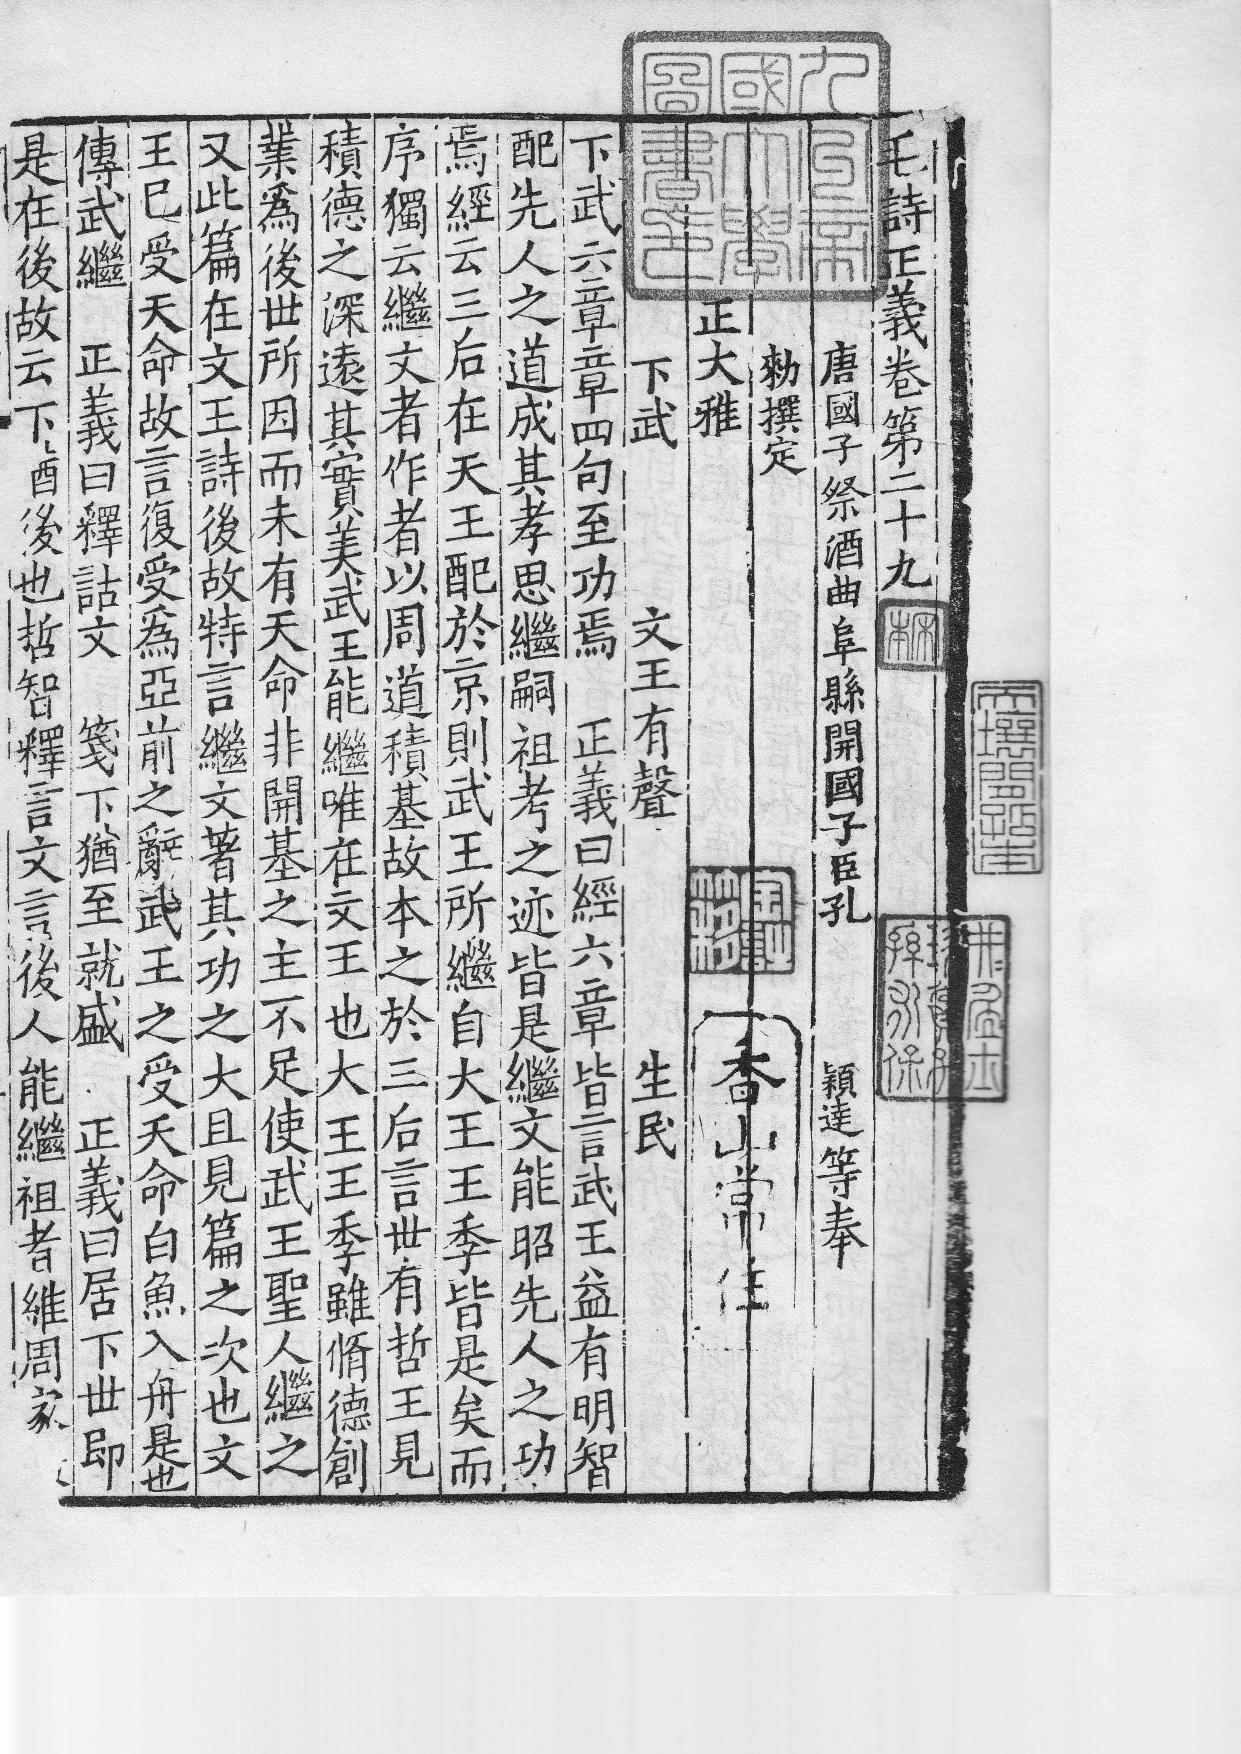 毛詩正義卷第二十九
唐國子祭酒曲阜縣開國子臣孔穎達等奉
勑撰定
香山常住
正大雅
下武 文王有聲 生民
下武六章章四句至功焉 正義曰經六章皆言武王益有明智
配先人之道成其孝思繼嗣祖考之迹皆是繼文能昭先人之功
焉經云三后在天王配於京則武王所繼自大王王季皆是矣而
序獨云繼文者作者以周道積基故本之於三后言世有哲王見
積德之深遠其實美武王能繼唯在文王也大王王季雖脩德創
業爲後世所因而未有天命非開基之主不足使武王聖人繼之
又此篇在文王詩後故特言繼文著其功之大且見篇之次也文
王已受天命故言復受爲亞前之辭武王之受天命白魚入舟是也
傳武繼 正義曰釋詁文 箋下猶至就盛 正義曰居下世即
是在後故云下猶後也哲智釋言文言後人能繼祖者維周家
九州帝國大學圖書印